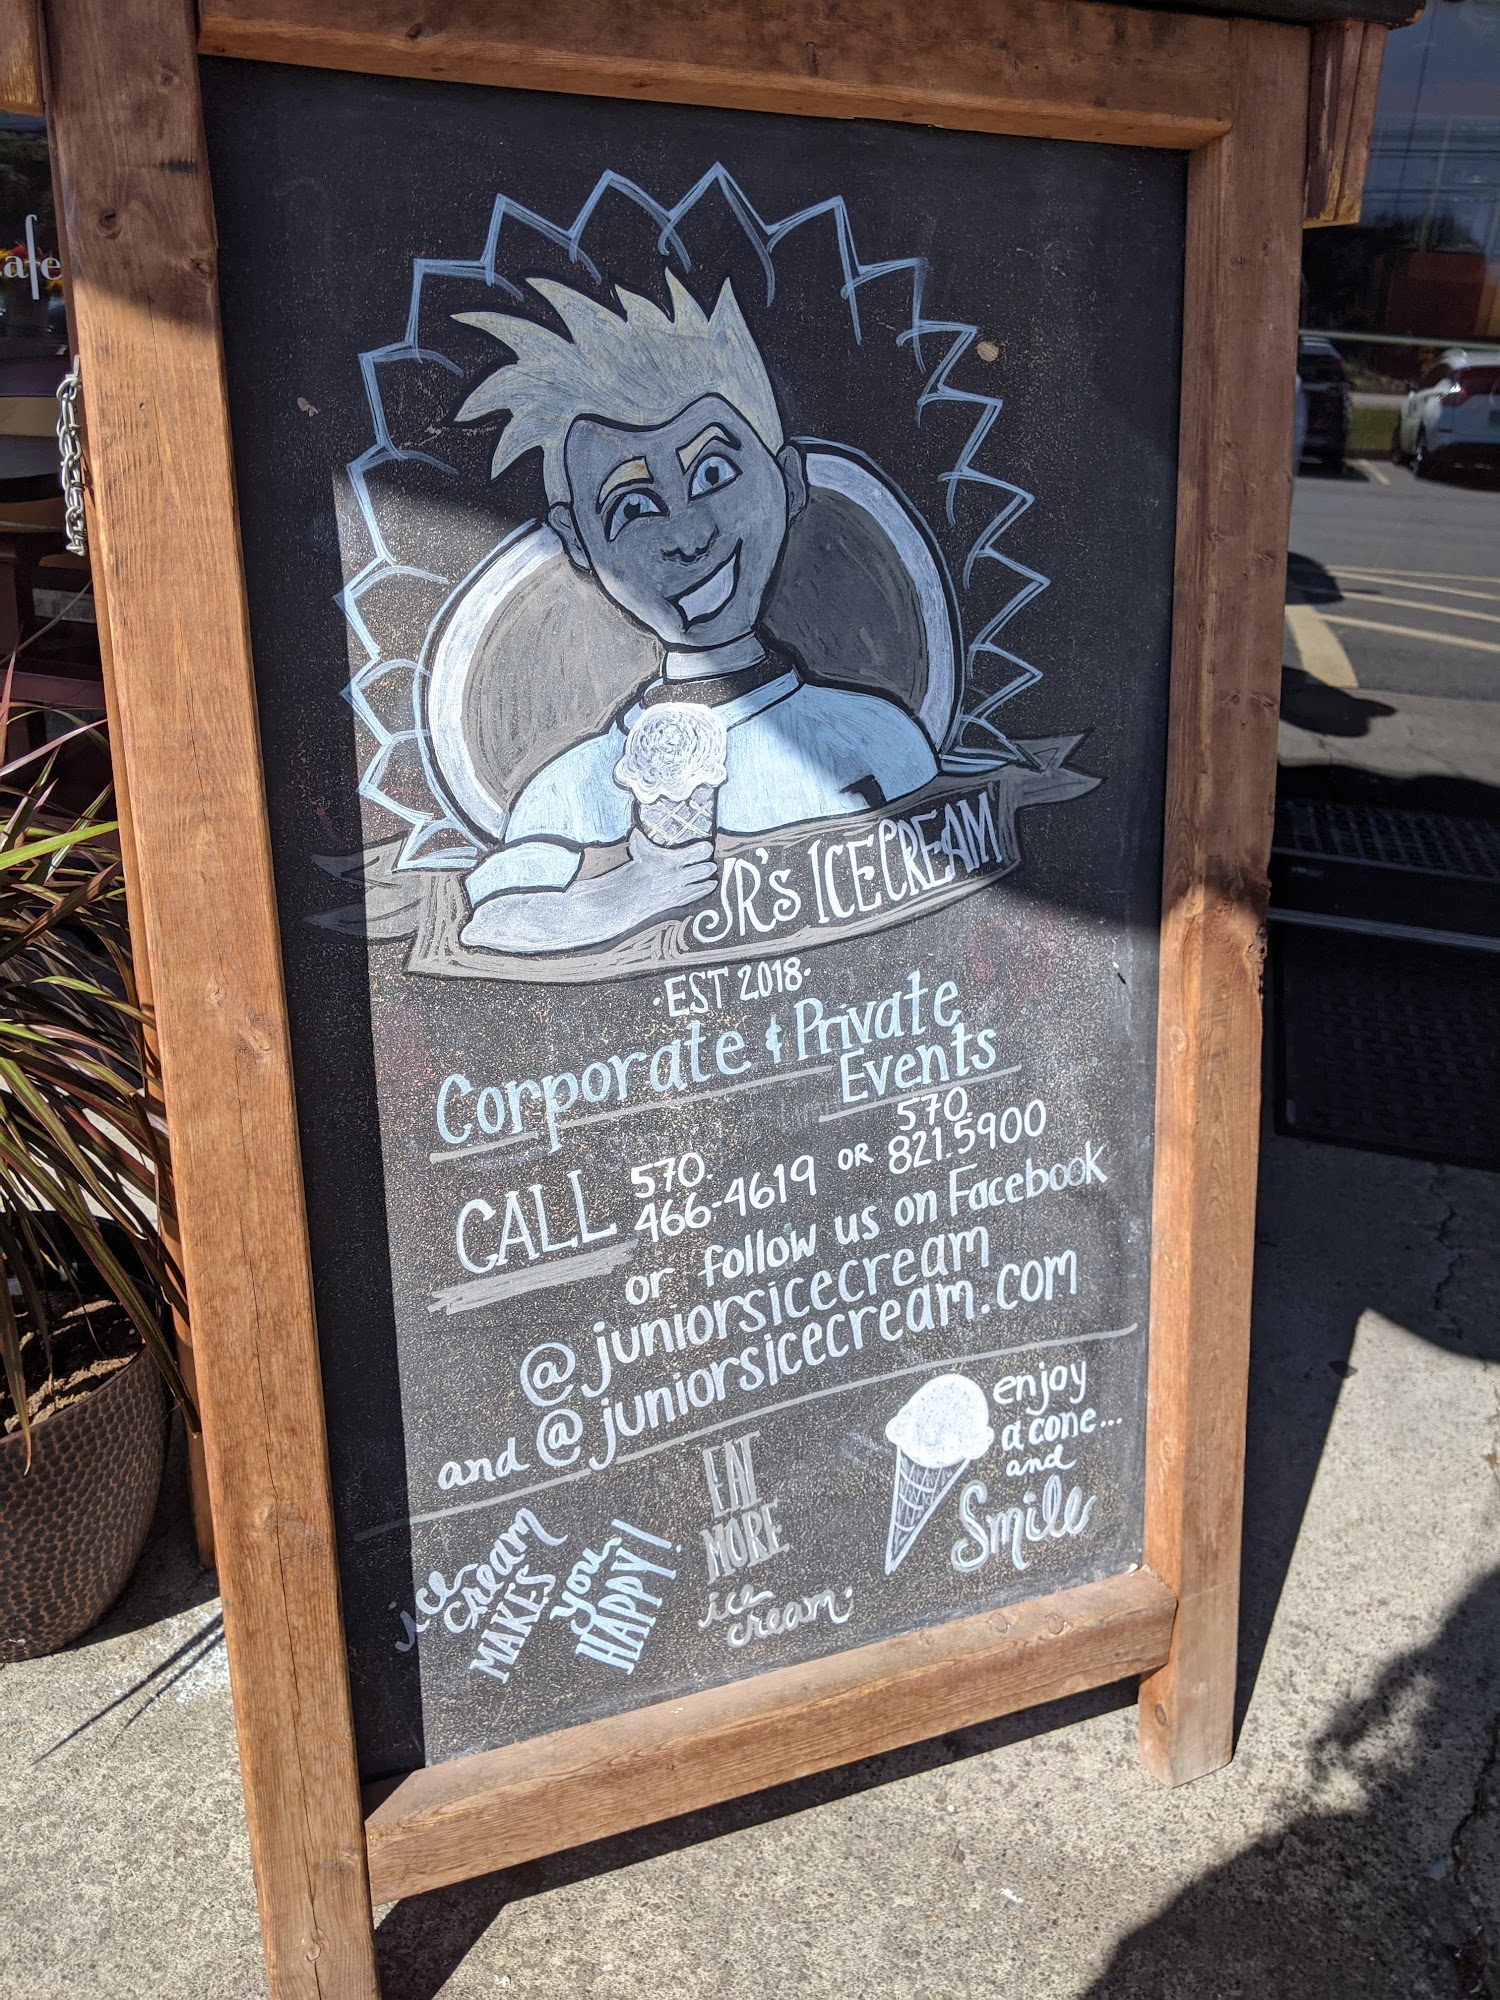 afe
JR's ICE CREAM
·EST 2018·
Corporate & Private
Events
CALL 570.
466-4619 OR 570.
821.5900
or follow us on Facebook
@juniorsicecream
and @juniorsicecream.com
ice
cream
MAKES
you
HAPPY!
EAT
MORE
ice
cream.
enjoy
a cone...
and
Smile